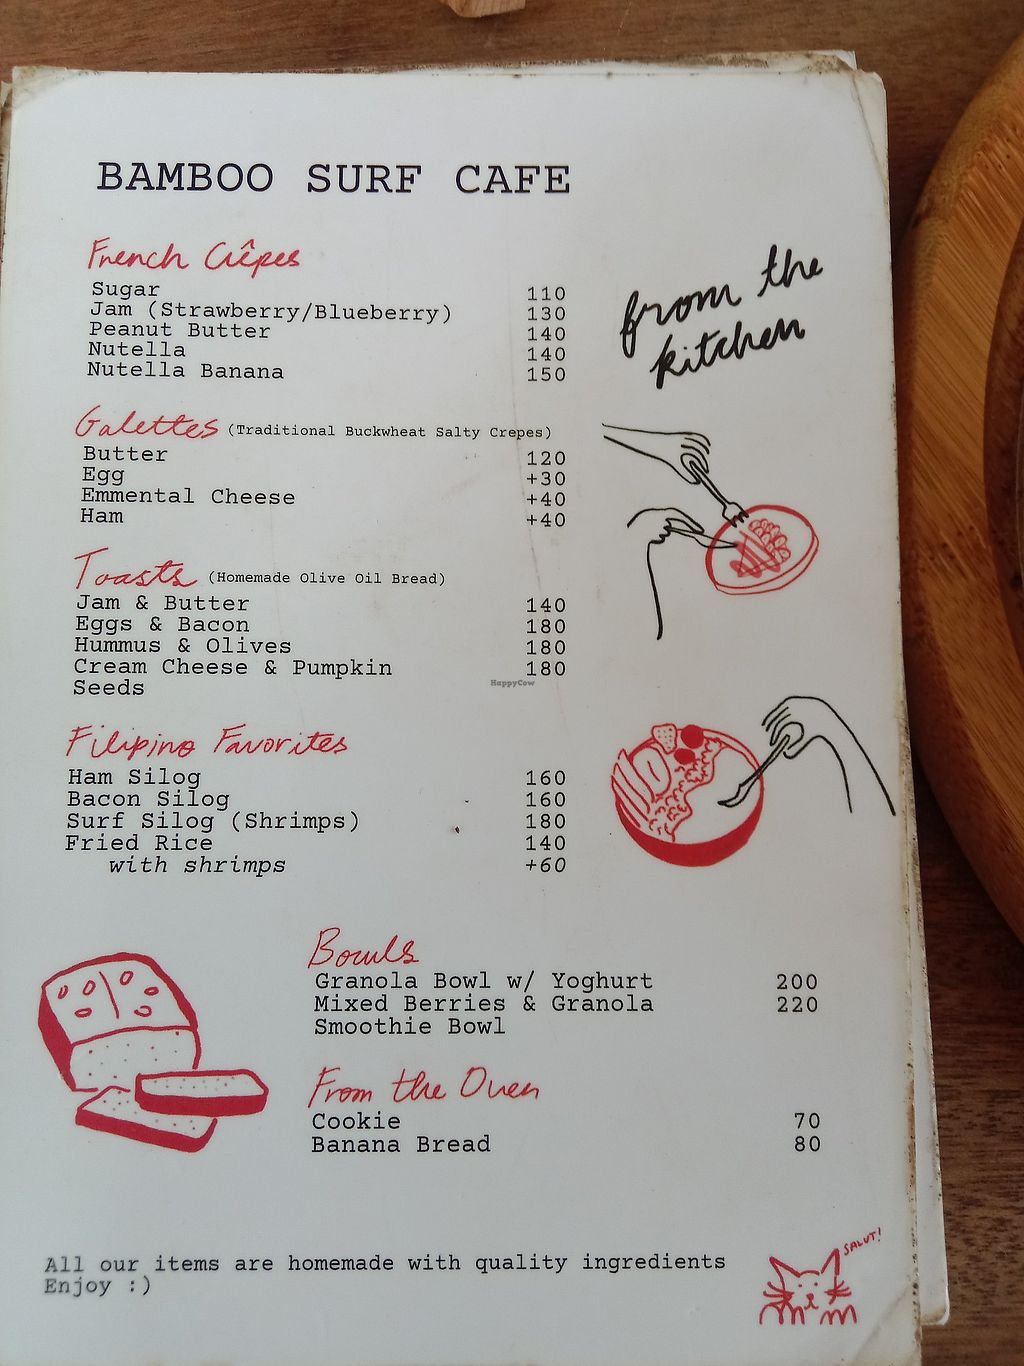 BAMBOO SURF CAFE
French Crêpes
Sugar 110
Jam (Strawberry/Blueberry) 130
Peanut Butter 140
Nutella 140
Nutella Banana 150
from the
kitchen
Galettes (Traditional Buckwheat Salty Crepes)
Butter 120
Egg +30
Emmental Cheese +40
Ham +40
Toasts (Homemade Olive Oil Bread)
Jam & Butter 140
Eggs & Bacon 180
Hummus & Olives 180
Cream Cheese & Pumpkin 180
Seeds
HappyCow
Filipino Favorites
Ham Silog 160
Bacon Silog 160
Surf Silog (Shrimps) 180
Fried Rice 140
with shrimps +60
Bowls
Granola Bowl w/ Yoghurt 200
Mixed Berries & Granola 220
Smoothie Bowl
From the Oven
Cookie 70
Banana Bread 80
All our items are homemade with quality ingredients
Enjoy :)
SALUT!